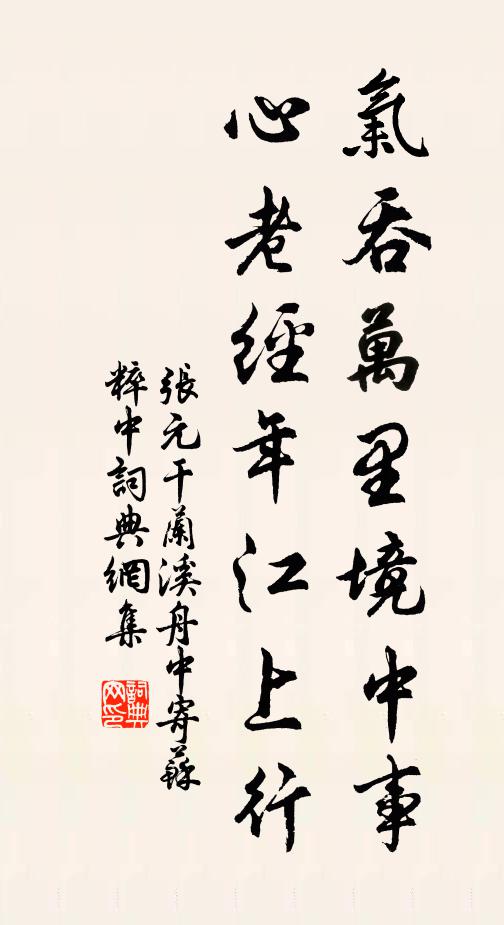 氣吞萬里境中事
心老經年江上行
張元干蘭溪舟中寄蘇
粹中詞典網集
詞典
网印